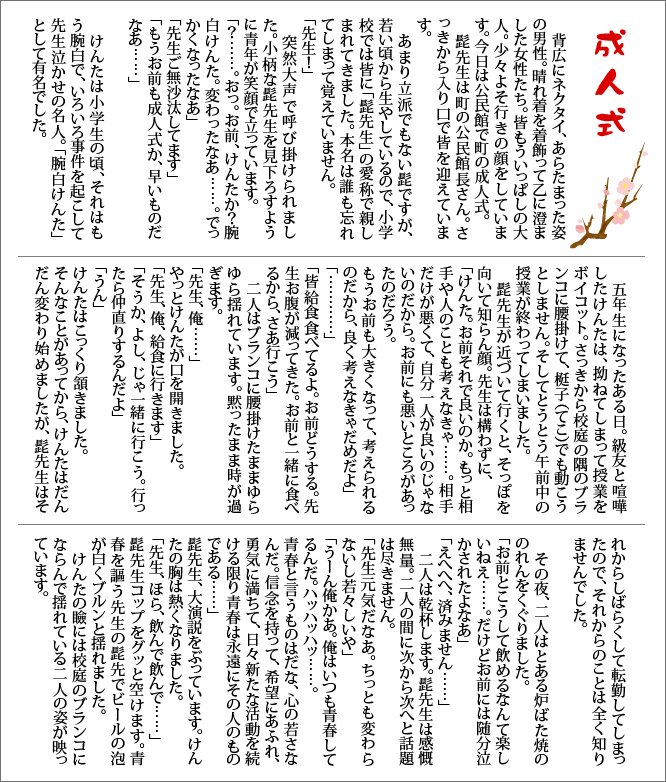 成人式
　背広にネクタイ、あらたまった姿
の男性。晴れ着を着飾って乙に澄ま
した女性たち。皆もういっぱしの大
人。少々よそ行きの顔をしていま
す。今日は公民館で町の成人式。
　髭先生は町の公民館長さん。さ
っきから入り口で皆を迎えていま
す。
　あまり立派でもない髭ですが、
若い頃から生やしているので、小学
校では皆に「髭先生」の愛称で親し
まれてきました。本名は誰も忘れ
てしまって覚えていません。
「先生！」
　突然大声で呼び掛けられまし
た。小柄な髭先生を見下ろすよう
に青年が笑顔で立っています。
「？……。おっ。お前、けんたか？腕
白けんた。変わったなあ……。でっ
かくなったなあ」
「先生ご無沙汰してます」
「もうお前も成人式か、早いものだ
なあ……」
　けんたは小学生の頃、それはも
う腕白で、いろいろ事件を起こして
先生泣かせの名人。「腕白けんた」
として有名でした。
　五年生になったある日。級友と喧嘩
したけんたは、拗ねてしまって授業を
ボイコット。さっきから校庭の隅のブラ
ンコに腰掛けて、梃子（てこ）でも動こう
としません。そしてとうとう午前中の
授業が終わってしまいました。
　髭先生が近づいて行くと、そっぽを
向いて知らん顔。先生は構わずに、
「けんた。お前それで良いのか。もっと相
手や人のことも考えなきゃ……。相手
だけが悪くて、自分一人が良いのじゃな
いのだから。お前にも悪いところがあっ
たのだろう。
もうお前も大きくなって、考えられる
のだから、良く考えなきゃだめだよ」
「…………」
「皆給食食べてるよ。お前どうする。先
生お腹が減ってきた。お前と一緒に食べ
るから、さあ行こう」
　二人はブランコに腰掛けたままゆら
ゆら揺れています。黙ったまま時が過
ぎます。
「先生、俺……」
やっとけんたが口を開きました。
「先生、俺、給食に行きます」
「そうか、よし、じゃ一緒に行こう。行っ
たら仲直りするんだよ」
「うん」
けんたはこっくり頷きました。
そんなことがあってから、けんたはだん
だん変わり始めましたが、髭先生はそ
れからしばらくして転勤してしまっ
たので、それからのことは全く知り
ませんでした。
　その夜、二人はとある炉ばた焼の
のれんをくぐりました。
「お前とこうして飲めるなんて楽し
いねえ……。だけどお前には随分泣
かされたよなあ」
「えへへ、済みません……」
　二人は乾杯します。髭先生は感慨
無量。二人の間に次から次へと話題
は尽きません。
「先生元気だなあ。ちっとも変わら
ないし若々しいや」
「うーん俺かあ。俺はいつも青春して
るんだ。ハッハッハッ……。
青春と言うものはだな、心の若さな
んだ。信念を持って、希望にあふれ、
勇気に満ちて、日々新たな活動を続
ける限り青春は永遠にその人のもの
である……」
髭先生、大演説をぶっています。けん
たの胸は熱くなりました。
「先生、ほら、飲んで飲んで……」
髭先生コップをグッと空けます。青
春を謳う先生の髭先でビールの泡
が白くブルンと揺れました。
　けんたの瞼には校庭のブランコに
ならんで揺れている二人の姿が映っ
ています。